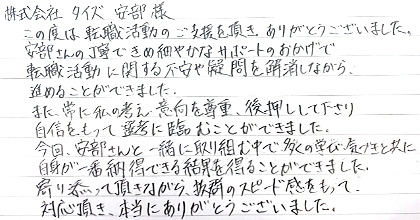 株式会社 タイズ 安部 様
この度は 転職活動のご支援を頂き、ありがとうございました。
安部さんの丁寧できめ細やかなサポートのおかげで
転職活動に関する不安や疑問を解消しながら、
進めることができました。
また、常に私の考え・意向を尊重、後押しして下さり
自信をもって選考に臨むことができました。
今回、安部さんと一緒に取り組む中で多くの学び・気づきと共に
自身が一番納得できる結果を得ることができました。
寄り添って頂きながら、抜群のスピード感をもって、
対応頂き、本当にありがとうございました。